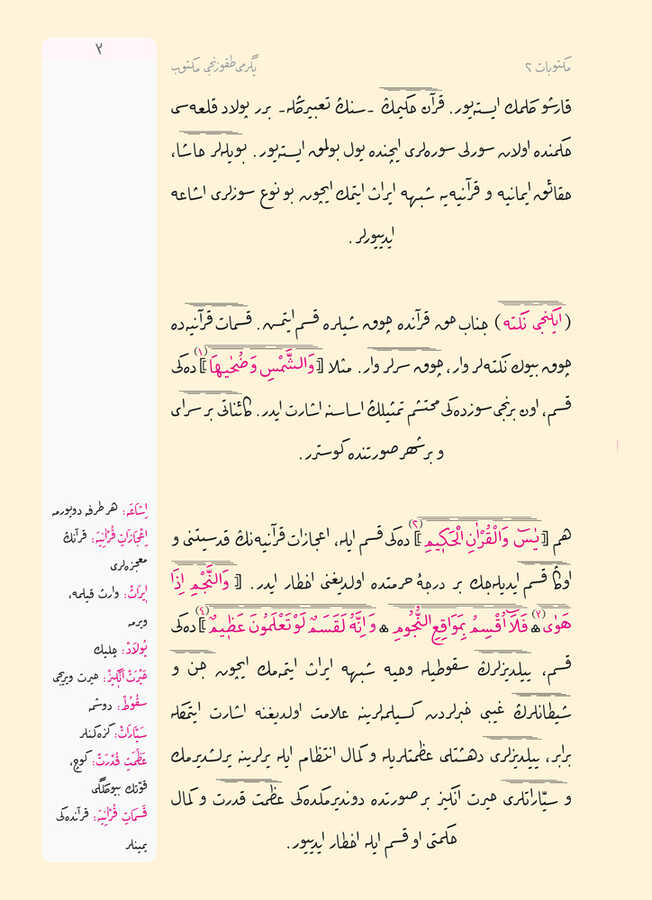 ٢
مكتوبات ٢
يگرمی طقوزنجی مكتوب
قارشو گلمك ایسته‌یور. قرآن حكیمڭ ـ سنڭ تعبیرڭله ـ برر پولاد قلعه‌سی
حكمنده اولان سورلی سوره‌لری ایچنده یول بولمق ایسته‌یور. بویله‌لر حاشا،
حقائق ایمانیه و قرآنیه‌یه شبهه ایراث ایتمك ایچون بو نوع سوزلری اشاعه
ایدییورلر.
(ایكنجی نكته) جناب حق قرآنده چوق شیلره قسم ایتمش. قسمات قرآنیه‌ده
چوق بیوك نكته‌لر وار، چوق سرلر وار. مثلا [وَالشَّمْسِ وَضُحٰیهَا](١) ده‌كی
قسم، اون برنجی سوزده‌كی محتشم تمثیلڭ اساسنه اشارت ایدر. كائناتی بر سرای
و بر شهر صورتنده گوسترر.
هم [یٰسٓ وَالْقُرْاٰنِ الْحَكٖیمِ](٢) ده‌كی قسم ایله، اعجازات قرآنیه‌نڭ قدسیتنی و
اوڭا قسم ایدیله‌جك بر درجۀ حرمتده اولدیغنی اخطار ایدر. [وَالنَّجْمِ اِذَا
هَوٰی(٣) ۞ فَلَٓا اُقْسِمُ بِمَوَاقِعِ النُّجُومِ ۞ وَاِنَّهُ لَقَسَمٌ لَوْ تَعْلَمُونَ عَظٖیمٌ](٤) ده‌كی
قسم، ییلدیزلرڭ سقوطیله وحیه شبهه ایراث ایتمه‌مك ایچون جن و
شیطانلرڭ غیبی خبرلردن كسیلمه‌لرینه علامت اولدیغنه اشارت ایتمكله
برابر، ییلدیزلری دهشتلی عظمتلریله و كمال انتظام ایله یرلرینه یرلشدیرمك
و سیّاراتلری حیرت انگیز بر صورتده دوندیرمكده‌كی عظمت قدرت و كمال
حكمتی او قسم ایله اخطار ایدییور.
اِشَاعَه: هر طرفه دویورمه
اِعْجَازَاتِ قُرْاٰنِیَه: قرآنڭ
معجزه‌لری
اٖیرَاثْ: وارث قیلمه،
ویرمه
پُولَادْ: چلیك
حَیْرَتْ اَنْگٖیزْ: حیرت ویریجی
سُقُوطْ: دوشمه
سَیَّارَاتْ: گزه‌گنلر
عَظَمَتِ قُدْرَتْ: گوج،
قوتڭ بیوكلگی
قَسَمَاتِ قُرْاٰنِیَه: قرآنده‌كی
یمینلر